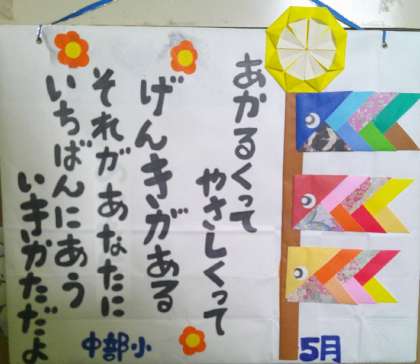 あかるくって
やさしくって
げんきがある
それがあなたに
いちばんにあう
いきかただよ
中部小
5月